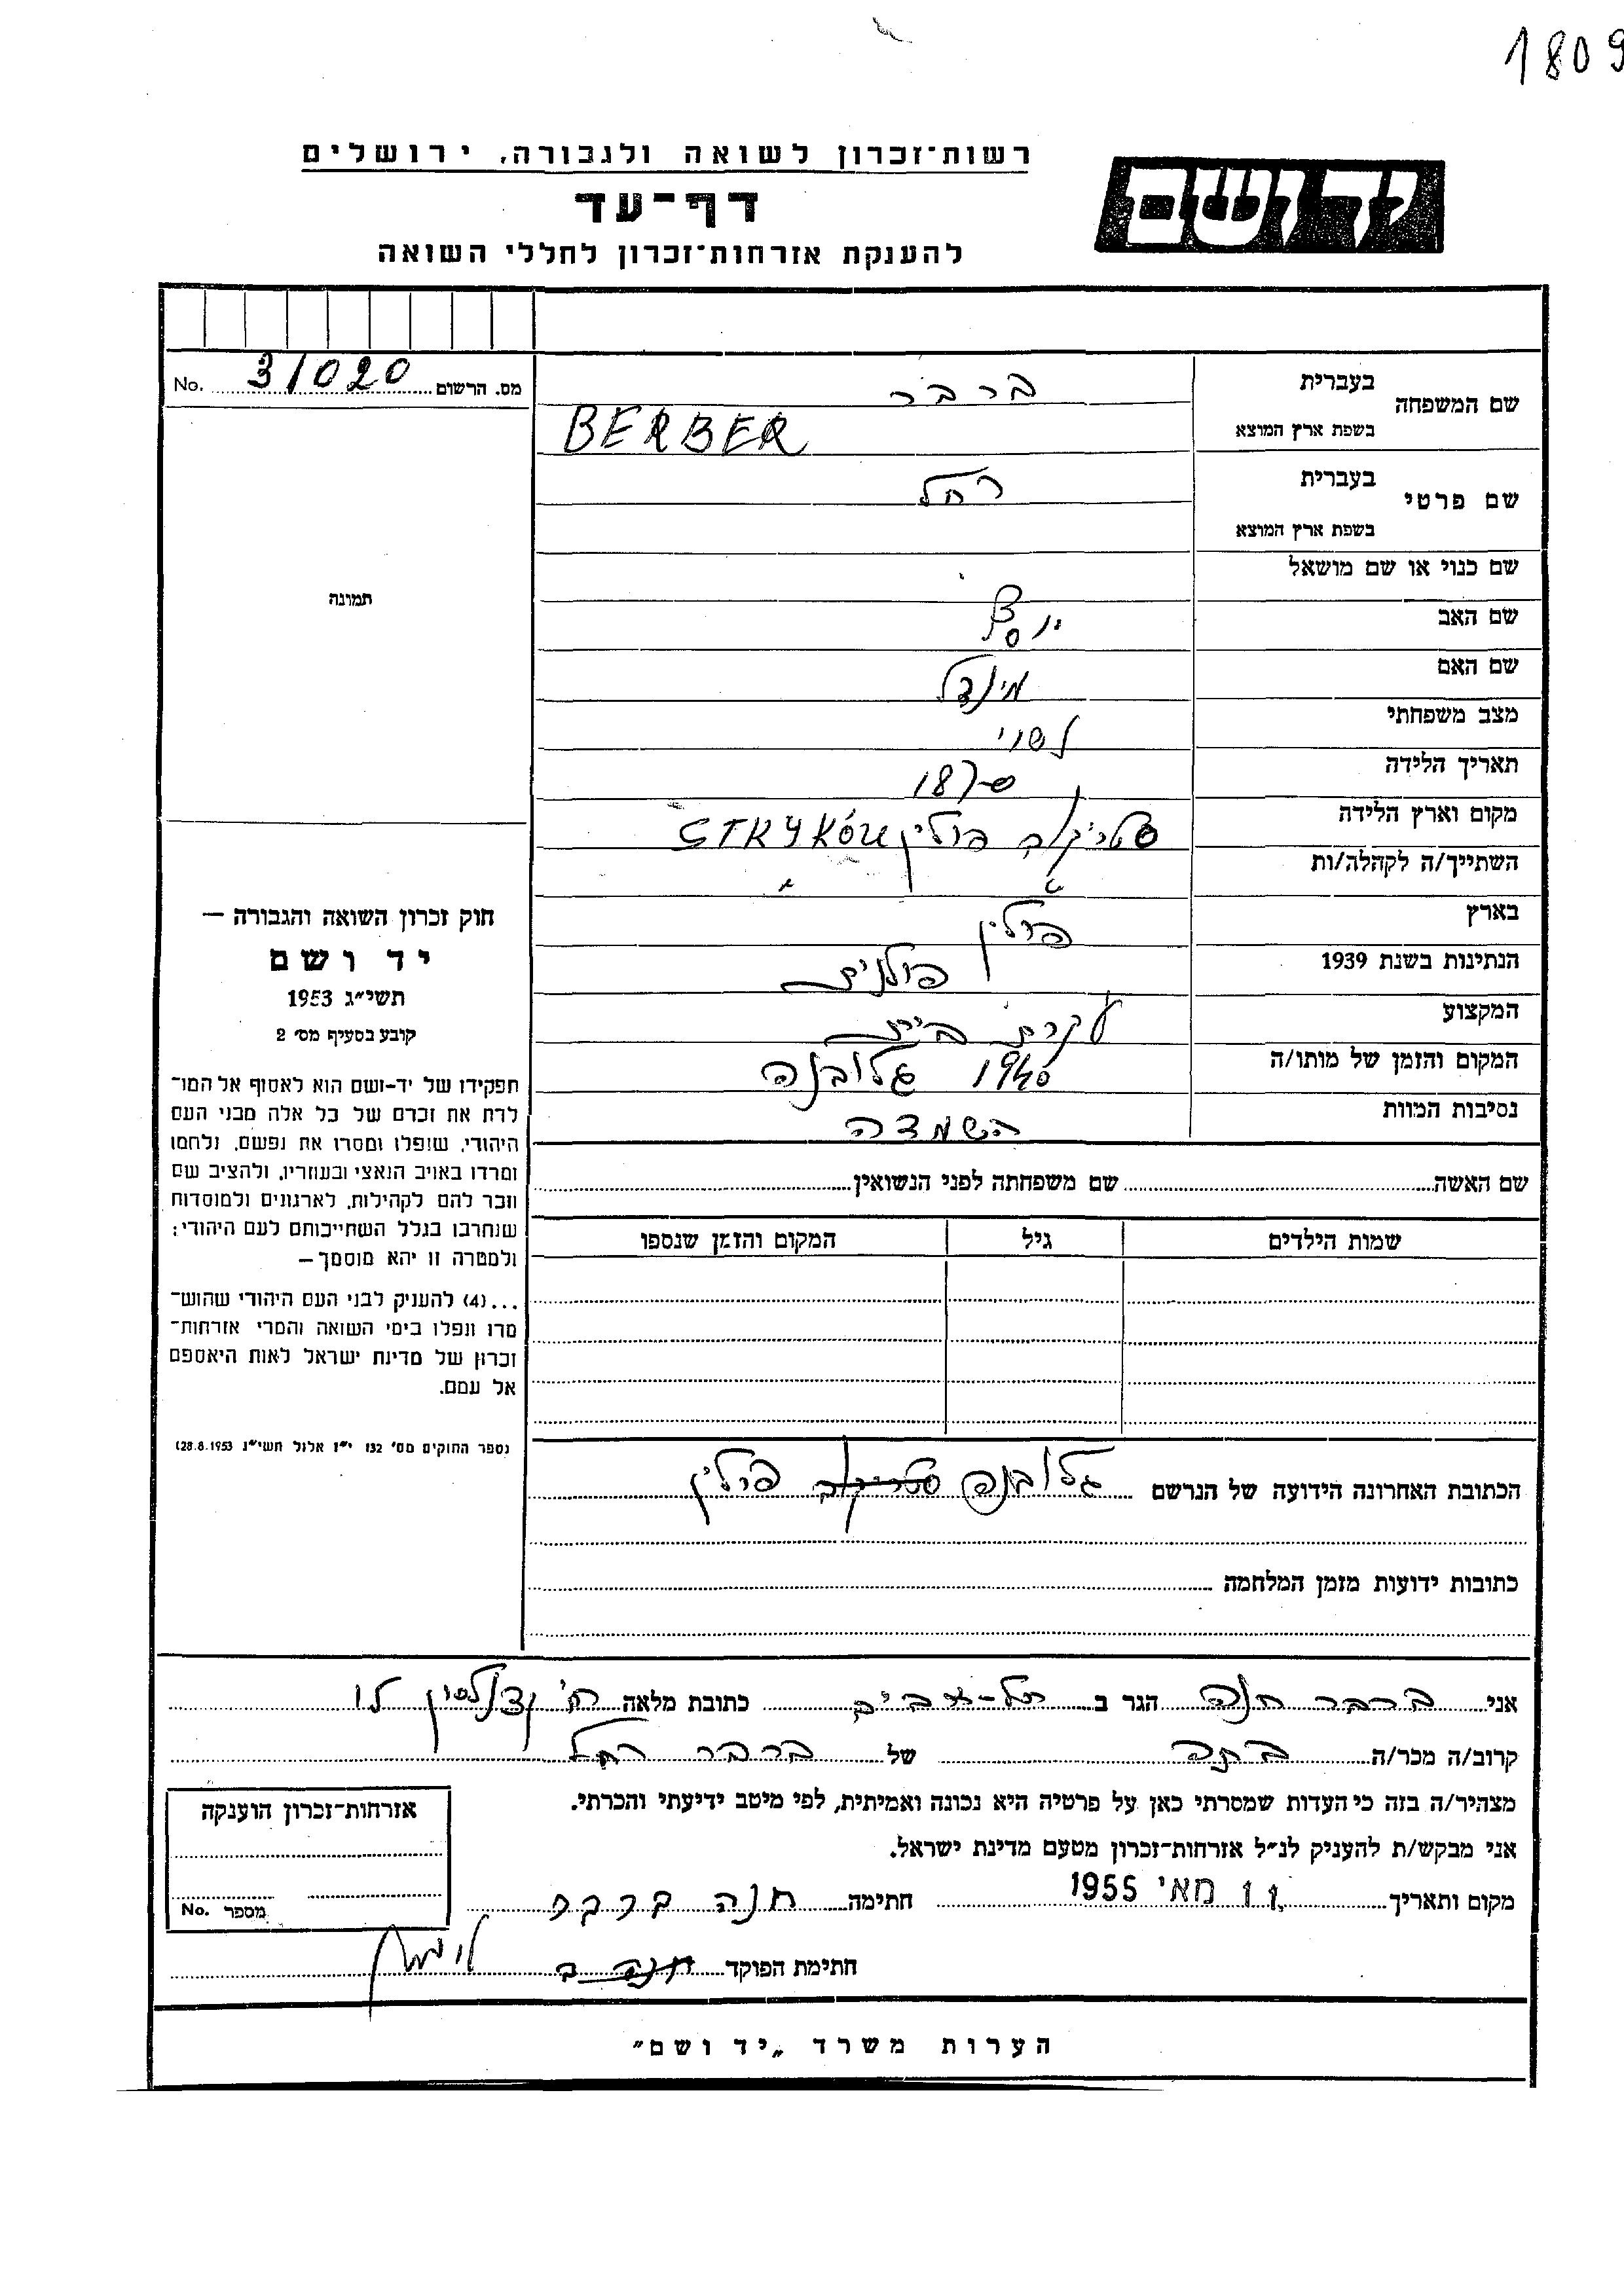 1809
רשות-זכרון לשואה ולגבורה, ירושלים
יד ושם
דף-עד
להענקת אזרחות-זכרון לחללי השואה
מס. הרשום 31020 No.
שם המשפחה בעברית ברבר
בשפת ארץ המוצא BERBER
שם פרטי בעברית רחל
בשפת ארץ המוצא
שם כנוי או שם מושאל
שם האב יוסף
שם האם מינדל
מצב משפחתי נשוי
תאריך הלידה 1870
מקום וארץ הלידה סטריקוב פולין STRYKÓW
השתייך/ה לקהלה/ות " "
בארץ פולין
הנתינות בשנת 1939 פולנית
המקצוע עקרת בית
המקום והזמן של מותו/ה 1940 גלובנה
נסיבות המוות השמדה
תמונה
חוק זכרון השואה והגבורה —
יד ושם
תשי"ג 1953
קובע בסעיף מס' 2
תפקידו של יד-ושם הוא לאסוף אל המו-
לדת את זכרם של כל אלה מבני העם
היהודי, שנפלו ומסרו את נפשם, נלחמו
ומרדו באויב הנאצי ובעוזריו, ולהציב שם
וזכר להם לקהילות, לארגונים ולמוסדות
שנחרבו בגלל השתייכותם לעם היהודי;
ולמטרה זו יהא מוסמך —
...(4) להעניק לבני העם היהודי שהוש-
מדו ונפלו בימי השואה והמרי אזרחות-
זכרון של מדינת ישראל לאות היאספם
אל עמם.
(ספר החוקים מס' 132 י"ז אלול תשי"ג 28.8.1953)
שם האשה שם משפחתה לפני הנשואין
שמות הילדים גיל המקום והזמן שנספו
הכתובת האחרונה הידועה של הנרשם גלובנה סטריקוב פולין
כתובות ידועות מזמן המלחמה
אני ברבר חנה הגר ב תל-אביב כתובת מלאה רח'
קרוב/ה מכר/ה בתה של ברבר רחל
מצהיר/ה בזה כי העדות שמסרתי כאן על פרטיה היא נכונה ואמיתית, לפי מיטב ידיעתי והכרתי.
אני מבקש/ת להעניק לנ"ל אזרחות-זכרון מטעם מדינת ישראל.
מקום ותאריך 11 מאי 1955 חתימה חנה ברבר
חתימת הפוקד חנה ב
אזרחות-זכרון הוענקה
מספר No.
הערות משרד „יד ושם"